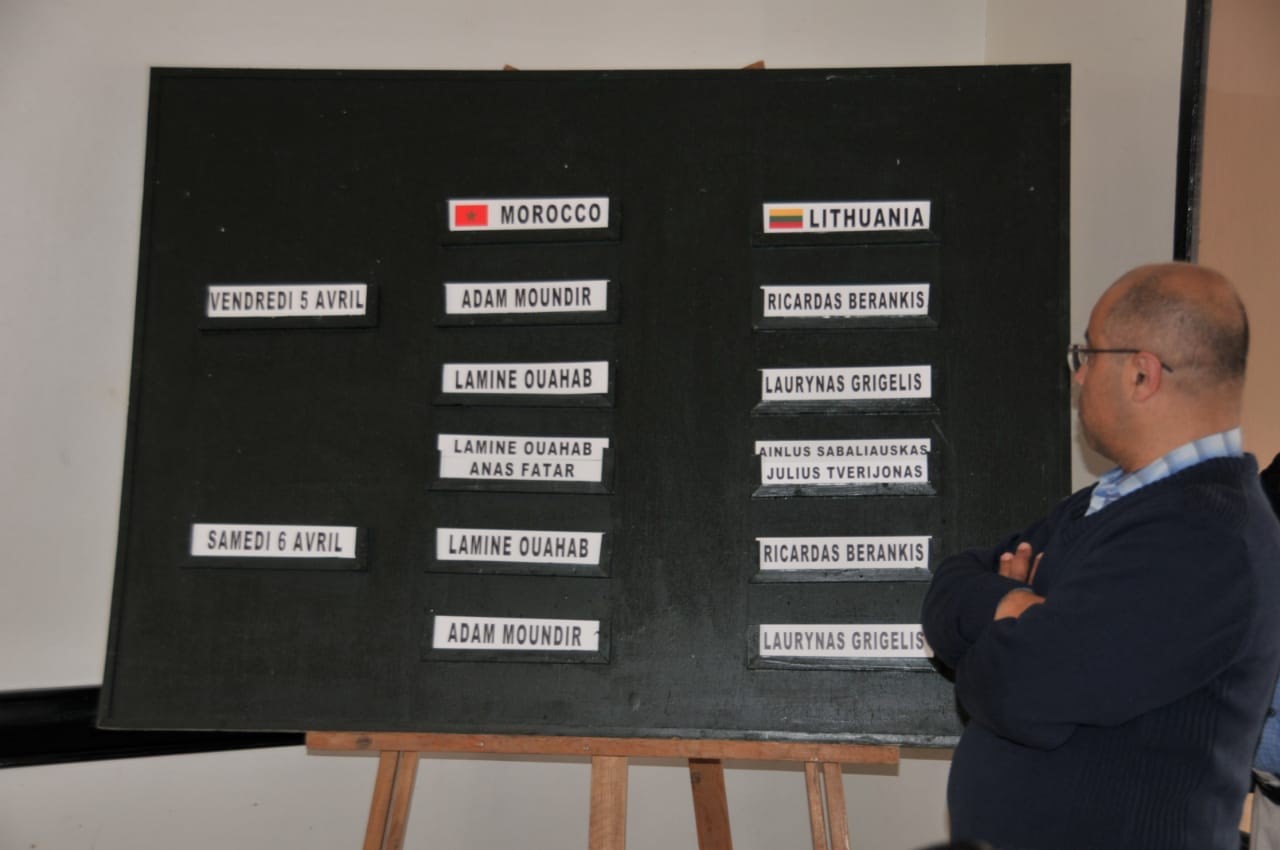 MOROCCO LITHUANIA
VENDREDI 5 AVRIL ADAM MOUNDIR RICARDAS BERANKIS
LAMINE OUAHAB LAURYNAS GRIGELIS
LAMINE OUAHAB AINLUS SABALIAUSKAS
ANAS FATAR JULIUS TVERIJONAS
SAMEDI 6 AVRIL LAMINE OUAHAB RICARDAS BERANKIS
ADAM MOUNDIR LAURYNAS GRIGELIS